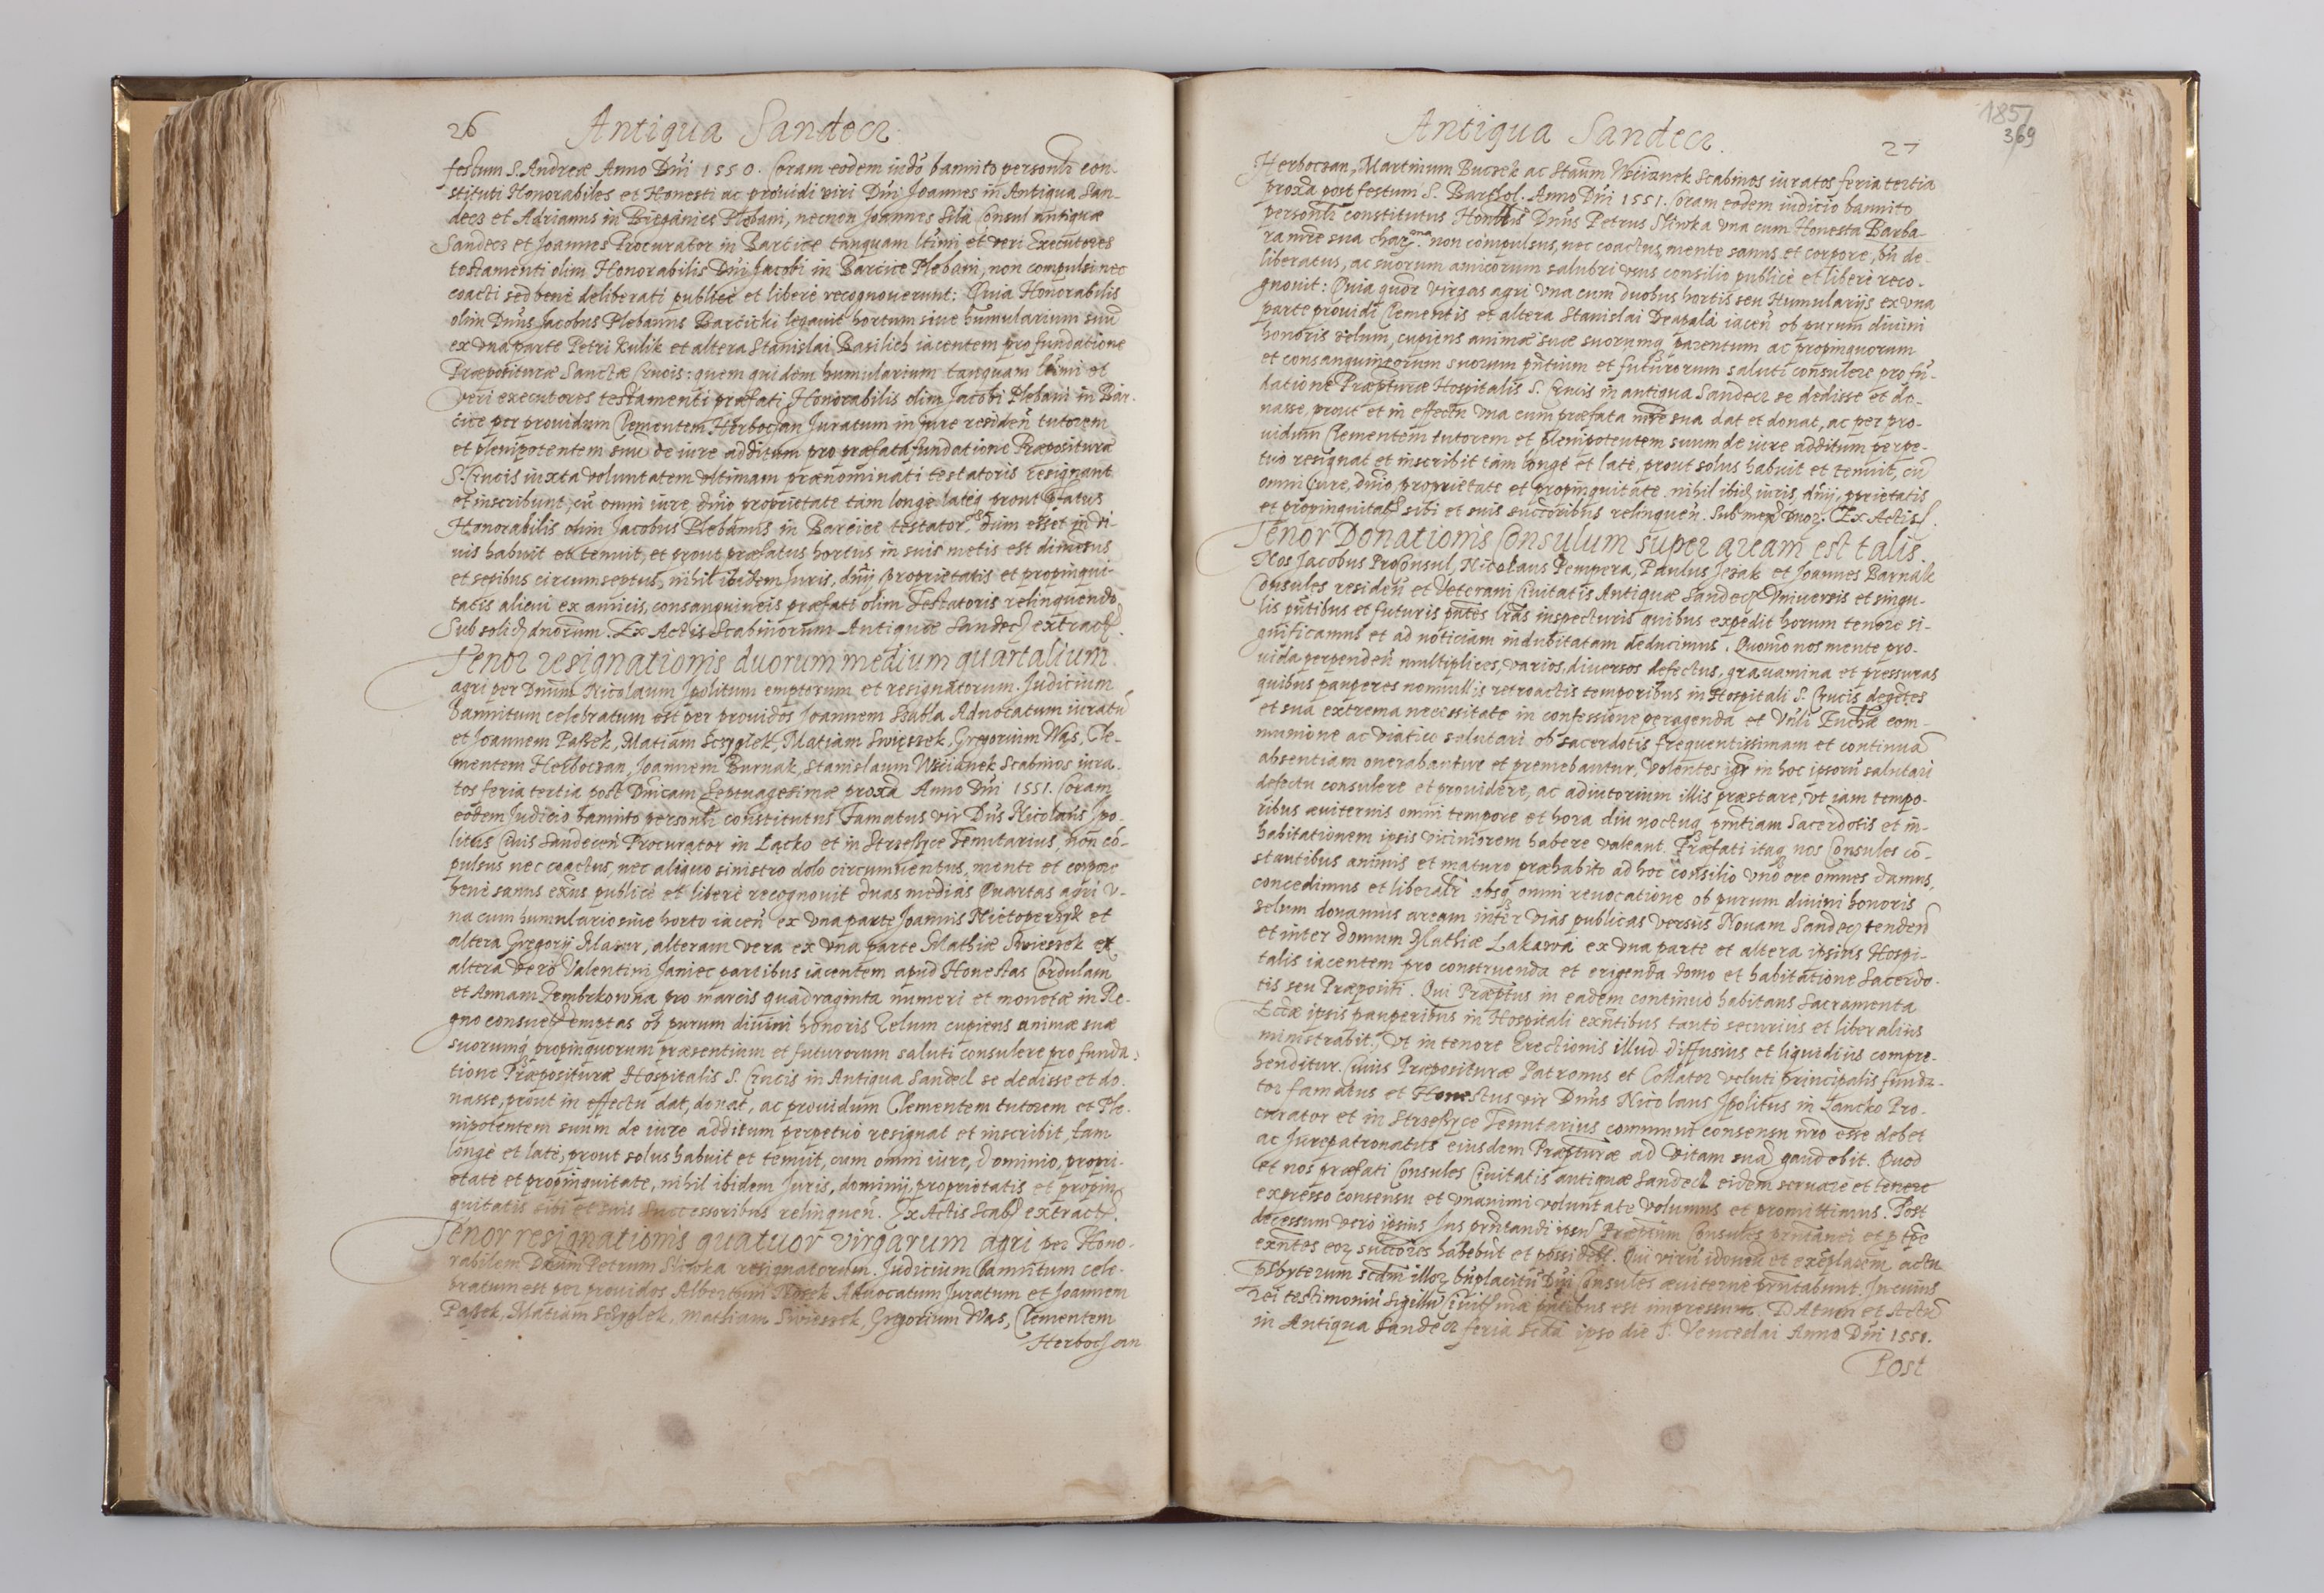 26 Antiqua Sandecz.
festum S. Andreæ Anno Dni 1550. Coram eodem iudo bannito personlr con-
stituti Honorabiles et Honesti ac prouidi viri Dni Joannes in Antiqua San-
decz et Adrianus in Biegánice Plebani, necnon Joannes Silá Consul antiquæ
Sandecz et Joannes Procurator in Barcice tanquam ltimi et veri Executores
testamenti olim Honorabilis Dni Jacobi in Barcice Plebani, non compulsi nec
coacti sed benè deliberati publicè et liberè recognouerunt: Quia Honorabilis
olim Dnus Jacobus Plebanus Barcicki legauit hortum siue humularium suũ
ex vna parte Petri Kulik et altera Stanislai Basilich iacentem pro fundatione
Præpositurae Sanctæ Crucis: quem quidem humularium tanquam ltimi et
veri executores testamenti præfati Honorabilis olim Jacobi Plebani in Bar-
cice per prouidum Clementem Herboczan Juratum in iure residen̄ tutorem
et plenipotentem suũ de iure additum pro præfata fundatione Præpositura
S. Crucis iuxta voluntatem vltimam prænominati testatoris resignant
et inscribunt, cũ omni iure dnio proprietate tam longè lateq prout pfatus
Honorabilis olim Jacobus Plebanus in Barcice testator dum esset in vi-
uis habuit et tenuit, et prout præfatus hortus in suis metis est dimensus
et sepibus circumseptus, nihil ibidem Juris, dnij proprietatis et propinqui-
tatis alicui ex amicis, consanguineis præfati olim Testatoris relinquendo
Sub solid dnorum. Ex Actis Scabinorum Antiquæ Sandecz extract.
Tenor resignationis duorum medium quartalium
agri per Dnum Nicolaum Jpolitum emptorum et resignatorum. Judicium
bannitum celebratum est per prouidos Joannem Szabla Aduocatum iuratũ
et Joannem Paßek, Matiam Sczyglek, Matiam Swięszek, Gregorium Wąs, Cle-
mentem Herboczan, Joannem Burnak, Stanislaum Wnianek Scabinos iura-
tos feria tertia post Dnicam Septuagesimæ proxa Anno Dni 1551. Coram
eodem Judicio bannito personlr constitutus Famatus vir Dnus Nicolaus Jpo-
litus Ciuis Sandecen̄ Procurator in Lącko et in Strzeßyce Tenutarius, non cõ-
pulsus nec coactus, nec aliquo sinistro dolo circumuentus, mente et corpore
benè sanus exn̄s publicè et liberè recognouit duas medias Quartas agri v-
na cum humulario siue horto iacen̄ ex vna parte Joannis Nietoperzyk et
altera Gregorij Mazur, alteram vera ex vna parte Mathiæ Swieszek ex
altera verò Valentini Janiec partibus iacentem apud Honestas Cordulam
et Annam Pembrkowna pro marcis quadraginta numeri et monetæ in Re-
gno consuet emptas ob purum diuini honoris Zelum cupiens animæ suæ
suorumq propinquorum præsentium et futurorum saluti consulere pro funda-
tione Præposituræ Hospitalis S. Crucis in Antiqua Sandecz se dedisse et do-
nasse, prout in effectu dat, donat, ac prouidum Clementem tutorem et Ple-
nipotentem suum de iure additum perpetuò resignat et inscribit, tam
longè et latè, prout solus habuit et tenuit, cum omni iure, dominio, propri-
etate et propinquitate, nihil ibidem Juris, dominij, proprietatis et propin-
quitatis sibi et suis successoribus relinquen̄. Ex Actis Scab extract.
Tenor resignationis quatuor virgarum agri per Hono-
rabilem Dnum Petrum Sliwka resignatorum. Judicium bannitum cele-
bratum est per prouidos Albertum Aduocatum Juratum et Joannem
Paßek, Matiam Sczyglek, Mathiam Swieszek, Gregorium Was, Clementem
Herboczan
Antiqua Sandecz. 27
1857
369
Herboczan, Martinum Buczek ac Staum Wnianek Scabinos iuratos feria tertia
proxa post festum S. Barthol. Anno Dni 1551. Coram eodem iudicio bannito
personlr constitutus Honblis Dnus Petrus Sliwka vna cum Honesta Barba-
ra mre sua char non compulsus, nec coactus, mente sanus et corpore, bn̄ de-
liberatus, ac suorum amicorum salubri vsus consilio publicè et liberè reco-
gnouit: Quia quor virgas agri vna cum duobus hortis seu Humularijs ex vna
parte prouidi Clementis et altera Stanislai Drapalá iacen̄ ob purum diuini
honoris zelum, cupiens animæ suæ suorumq parentum ac propinquorum
et consanguineorum suorum pn̄tium et futurorum saluti consulere pro fũ-
datione Præpturæ Hospitalis S. Crucis in antiqua Sandecz se dedisse et do-
nasse, prout et in effectu vna cum præfata mre sua dat et donat, ac per pro-
uidum Clementem tutorem et plenipotentem suum de iure additum perpe-
tuò resignat et inscribit tam longè et latè, prout solus habuit et tenuit, cũ
omni iure, dnio, proprietate et propinquitate nihil ibid iuris, dnij, pprietatis
et propinquitat sibi et suis succoribus relinquen̄. Sub Ex Actis.
Tenor Donationis Consulum super aream est talis.
Nos Jacobus ProConsul, Nicolaus Pempera, Paulus Jezak et Joannes Barnák
Consules residen̄ et Veterani Ciuitatis Antiquæ Sandecz Vniuersis et singu-
lis pn̄tibus et futuris pn̄tes lras inspecturis quibus expedit horum tenore si-
gnificamus et ad noticiam indubitatam deducimus. Quomo nos mente pro-
uida perpenden̄ multiplices, varios, diuersos defectus, grauamina et pressuras
quibus pauperes nonnullis retroactis temporibus in Hospitali S. Crucis degetes
et sua extrema necessitate in confessione peragenda et Vnli Eucha com-
munione ac viatico salutari ob sacerdotis frequentissimam et continuã
absentiam onerabantur et premebantur, Volentes igr in hoc ipsorũ salutari
defectu consulere et prouidere, ac adiutorium illis præstare, vt iam tempo-
ribus æuiternis omni tempore et hora diu noctuq pn̄tiam Sacerdotis et in-
habitationem ipsis viciniorem habere valeant. Præfati itaq nos Consules cõ-
stantibus animis et maturo præhabito ad hoc consilio vno ore omnes damus,
concedimus et liberalr absq omni reuocatione ob purum diuini honoris
zelum donamus aream inter vias publicas versus Nouam Sandecz tenden̄
et inter domum Mathiæ Lakawa ex vna parte et altera ipsius Hospi-
talis iacentem pro construenda et erigenda domo et habitatione Sacerdo-
tis seu Præpositi. Qui Præptus in eadem continuò habitans Sacramenta
Eccæ ipsis pauperibus in Hospitali exn̄tibus tantò securius et liberalius
ministrabit, Vt in tenore Erectionis illud diffusius et liquidius compre-
henditur. Cuius Præposituræ Patronus et Collator veluti principalis funda-
tor famatus et Honestus vir Dnus Nicolaus Jpolitus in Lancko Pro-
curator et in Strzeßyce Tenutarius communi consensu nro esse debet
ac Jurepatronatus eiusdem Præpturæ ad vitam suã gaudebit. Quod
et nos præfati Consules Ciuitatis antiquæ Sandecz eidem seruare et tenere
expresso consensu et vnanimi voluntate volumus et promittimus. Post
decessum verò ipsius Jus prn̄tandi ipsu Præptum Consules prn̄tanei et p tpe
exn̄tes eoz succores habebũt et possideb. Qui virũ idoneũ et exẽplarem, actu
psbyterum scdm illoz bn̄placitũ Dni Consules æuiternè prn̄tabunt. In cuius
rei testimoniũ Sigillũ Ciuit nræ pn̄tibus est impressum. DAtum et Actũ
in Antiqua Sandecz feria scda ipso die S. Venceslai Anno Dni 1551.
Post